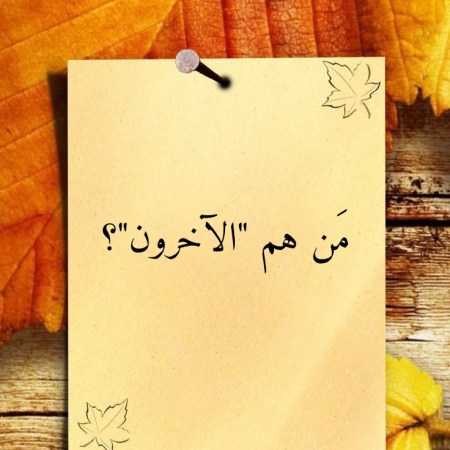 مَن هم "الآخرون"؟